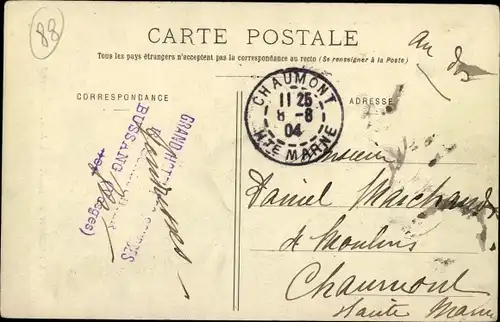 88
CARTE POSTALE
au dos
Tous les pays étrangers n'acceptent pas la correspondance au recto (Se renseigner à la Poste)
CORRESPONDANCE
ADRESSE
CHAUMONT
11 25
8 -8
04
HTE MARNE
GRAND HOT
BUSSANG
(Vosges)
Monsieur
Daniel Marchand
Moulins
Chaumont
Haute Marne